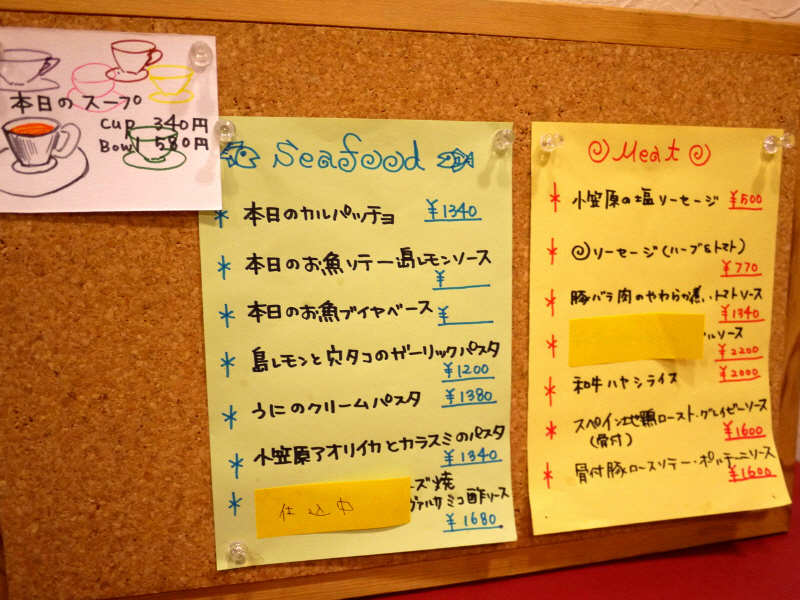 本日のスープ
Cup 340円
Bowl 580円
Seafood
* 本日のカルパッチョ ¥1340
* 本日のお魚ソテー島レモンソース
¥
* 本日のお魚ブイヤベース ¥
* 島レモンと穴タコのガーリックパスタ
¥1200
* うにのクリームパスタ ¥1380
* 小笠原アオリイカとカラスミのパスタ
¥1340
* ーズ焼
仕込中 ヴァルサミコ酢ソース
¥1680
Meat
* 小笠原の塩ソーセージ ¥500
* ソーセージ(ハーブ&トマト)
¥770
* 豚バラ肉のやわらか煮、トマトソース
¥1340
* ルソース
¥2200
* 和牛ハヤシライス ¥2000
* スペイン地鶏ロースト・グレイビーソース
(骨付) ¥1600
* 骨付豚ロースソテー・ポルチーニソース
¥1600